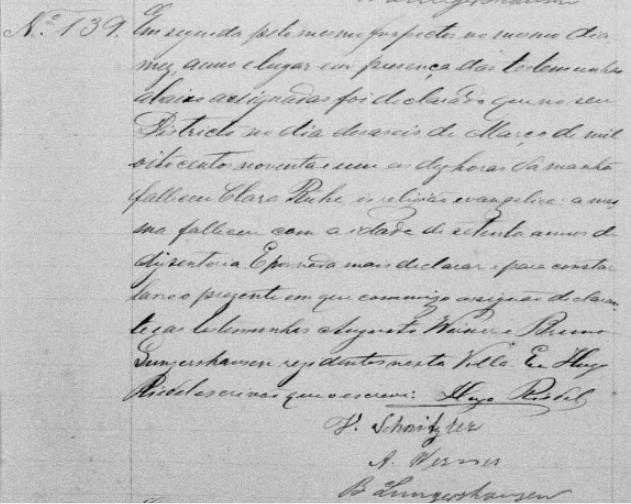 Nº 139. Em seguida pelo mesmo Inspector no mesmo dia
mez, anno e lugar em presença das testemunhas
abaixo assignadas foi declarado que no seu
Districto no dia deseseis de Março de mil
oitocentos noventa e um as dez horas da manhã
falleceu Clara Ruhe de religião evangelica: a mes
ma falleceu com a idade de setenta annos de
dysenteria. E por nada mais declarar e para constar
lavro o presente em que commigo assignão declaran
te e as testemunhas Augusto Werner e Bruno
Lungershausen residentes nesta Villa. Eu Hugo
Riedel escrivão que o escrevi: Hugo Riedel
H. Schnitzler
A. Werner
B Lungershausen